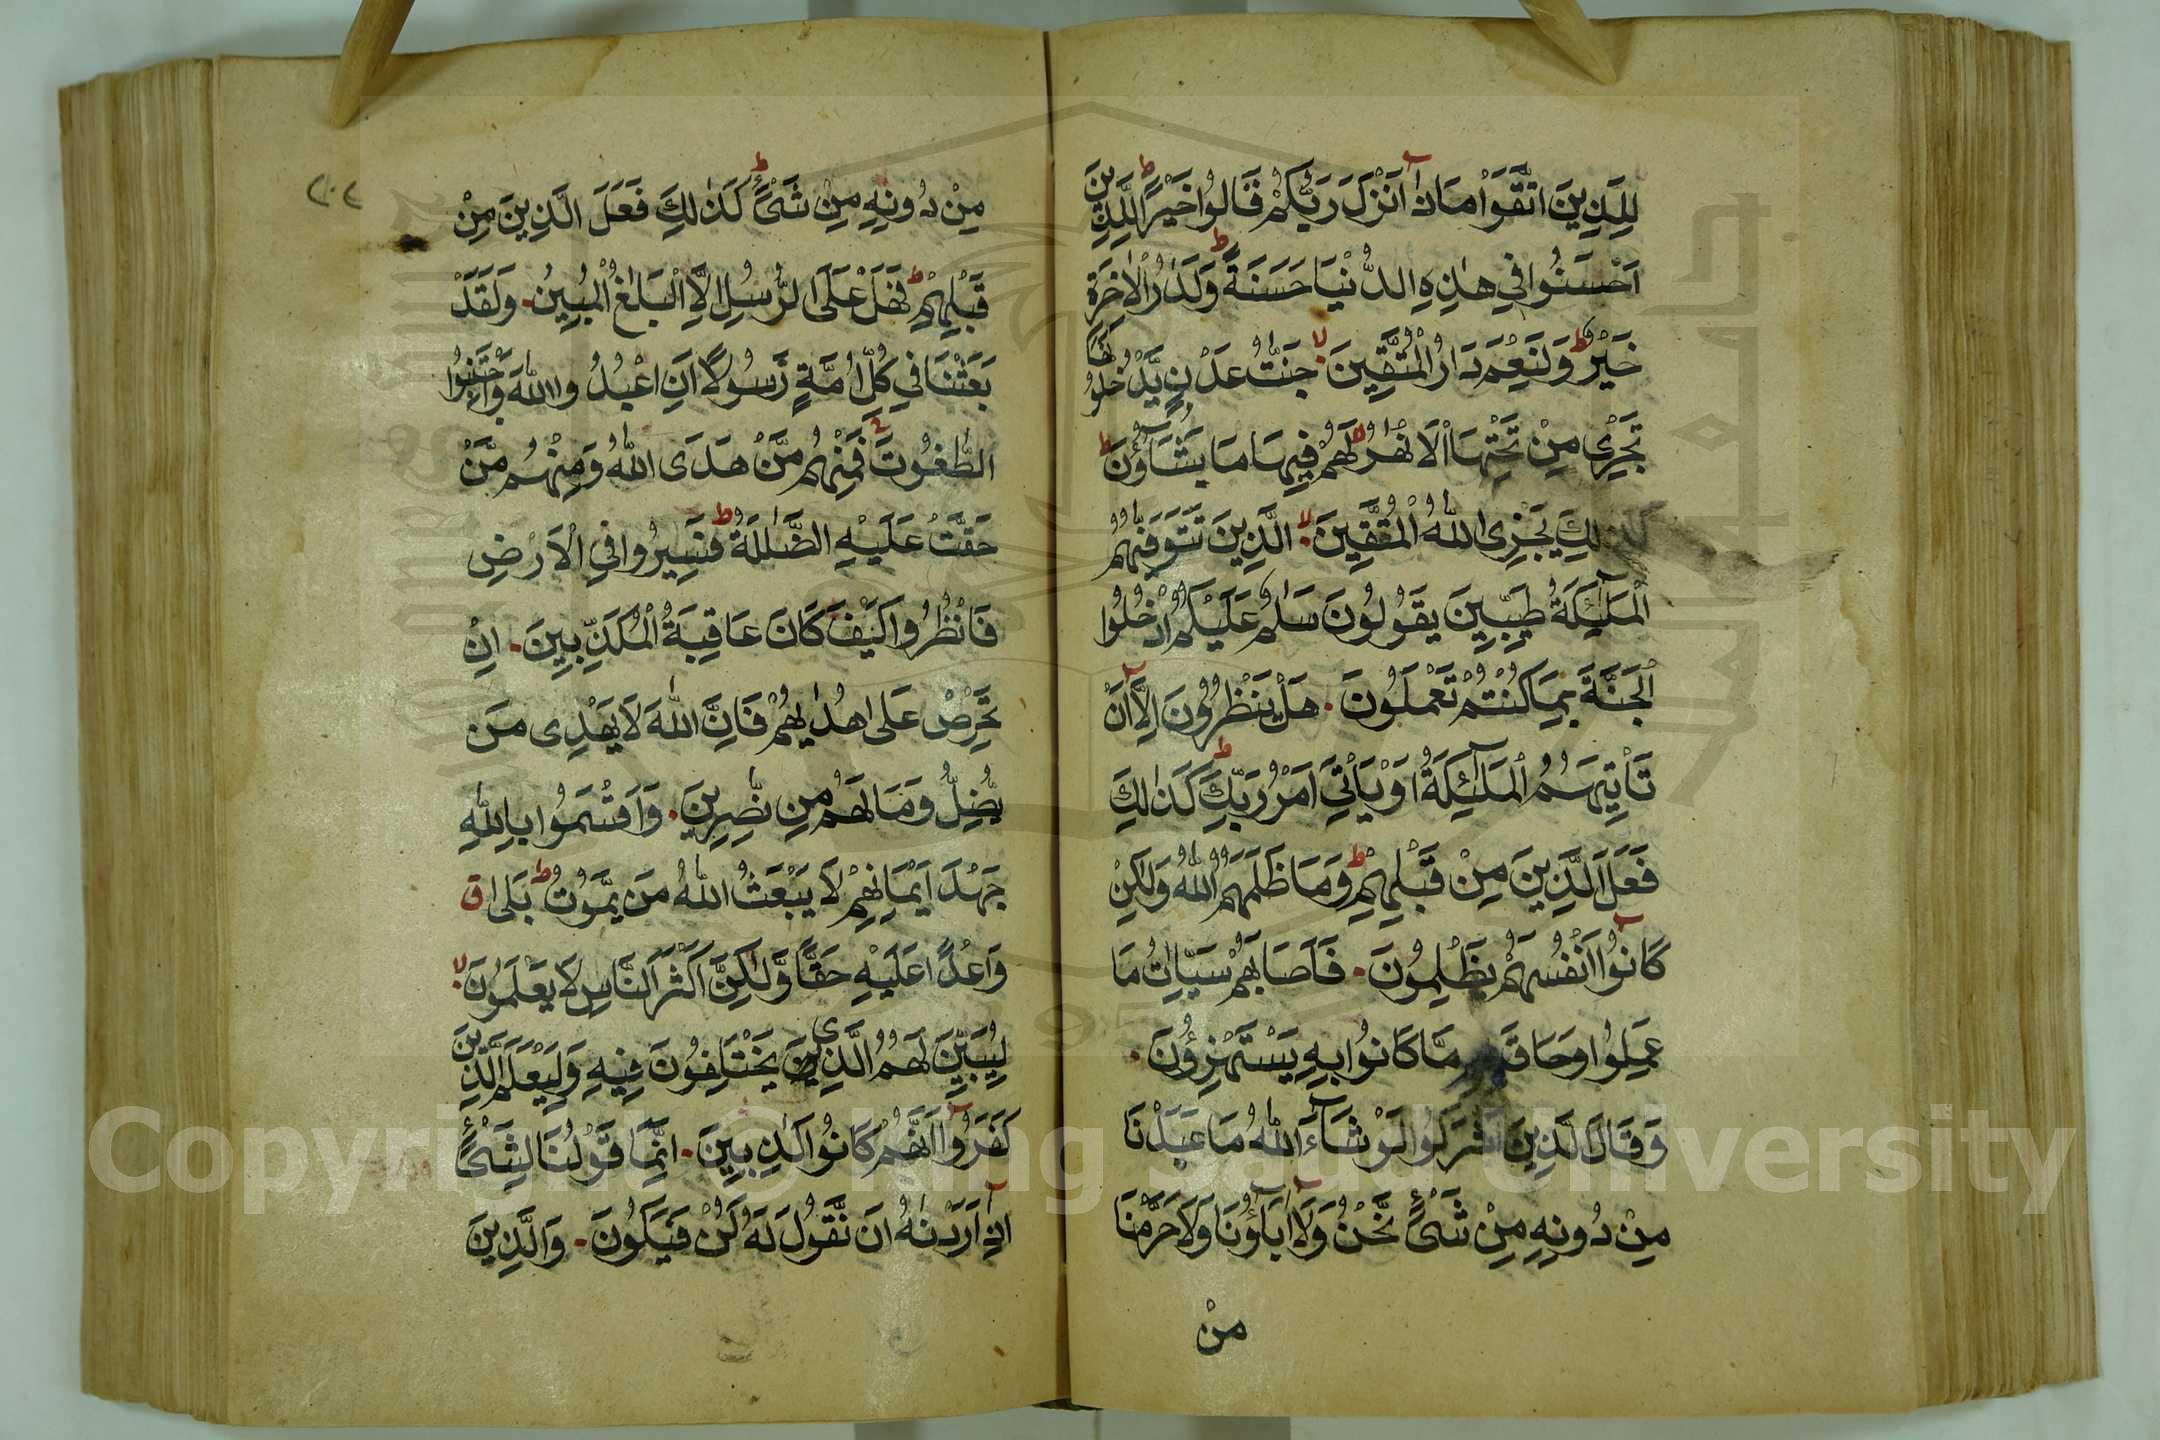 لِلَّذِينَ اتَّقَوْا مَاذَٓا اَنْزَلَ رَبُّكُمْ قَالُوا خَيْرًا ط لِلَّذِينَ
اَحْسَنُوا فِي هٰذِهِ الدُّنْيَا حَسَنَةٌ ط وَلَدَارُ الْاٰخِرَةِ
خَيْرٌ ط وَلَنِعْمَ دَارُ الْمُتَّقِينَ لا جَنّٰتُ عَدْنٍ يَّدْخُلُونَهَا
تَجْرِي مِنْ تَحْتِهَا الْاَنْهٰرُ لَهُمْ فِيهَا مَا يَشَآؤُنَ ط
كَذٰلِكَ يَجْزِى اللّٰهُ الْمُتَّقِينَ لا الَّذِينَ تَتَوَفّٰهُمُ
الْمَلٰٓئِكَةُ طَيِّبِينَ يَقُولُونَ سَلٰمٌ عَلَيْكُمُ ادْخُلُوا
الْجَنَّةَ بِمَا كُنْتُمْ تَعْمَلُونَ هَلْ يَنْظُرُونَ اِلَّٓا اَنْ
تَأْتِيَهُمُ الْمَلٰٓئِكَةُ اَوْ يَأْتِيَ اَمْرُ رَبِّكَ ط كَذٰلِكَ
فَعَلَ الَّذِينَ مِنْ قَبْلِهِمْ ط وَمَا ظَلَمَهُمُ اللّٰهُ وَلٰكِنْ
كَانُوٓا اَنْفُسَهُمْ يَظْلِمُونَ فَاَصَابَهُمْ سَيِّاٰتُ مَا
عَمِلُوا وَحَاقَ مَّا كَانُوا بِهِ يَسْتَهْزِؤُنَ
وَقَالَ الَّذِينَ اَشْرَكُوا لَوْ شَآءَ اللّٰهُ مَا عَبَدْنَا
مِنْ دُونِهِ مِنْ شَىْءٍ نَّحْنُ وَلَٓا اٰبَآؤُنَا وَلَا حَرَّمْنَا
مِنْ
مِنْ دُونِهِ مِنْ شَىْءٍ ط كَذٰلِكَ فَعَلَ الَّذِينَ مِنْ
قَبْلِهِمْ ط فَهَلْ عَلَى الرُّسُلِ اِلَّا الْبَلٰغُ الْمُبِينُ وَلَقَدْ
بَعَثْنَا فِي كُلِّ اُمَّةٍ رَّسُولًا اَنِ اعْبُدُوا اللّٰهَ وَاجْتَنِبُوا
الطّٰغُوتَ ج فَمِنْهُمْ مَّنْ هَدَى اللّٰهُ وَمِنْهُمْ مَّنْ
حَقَّتْ عَلَيْهِ الضَّلٰلَةُ ط فَسِيرُوا فِي الْاَرْضِ
فَانْظُرُوا كَيْفَ كَانَ عَاقِبَةُ الْمُكَذِّبِينَ اِنْ
تَحْرِصْ عَلٰى هُدٰيهُمْ فَاِنَّ اللّٰهَ لَا يَهْدِى مَن
يُّضِلُّ وَمَا لَهُم مِن نّٰصِرِينَ وَاَقْسَمُوا بِاللّٰهِ
جَهْدَ اَيْمَانِهِمْ لَا يَبْعَثُ اللّٰهُ مَن يَّمُوتُ ط بَلٰى ق
وَعْدًا عَلَيْهِ حَقًّا وَّلٰكِنَّ اَكْثَرَ النَّاسِ لَا يَعْلَمُونَ لا
لِيُبَيِّنَ لَهُمُ الَّذِى يَخْتَلِفُونَ فِيهِ وَلِيَعْلَمَ الَّذِينَ
كَفَرُوٓا اَنَّهُمْ كَانُوا كٰذِبِينَ اِنَّمَا قَوْلُنَا لِشَىْءٍ
اِذَٓا اَرَدْنٰهُ اَن نَّقُولَ لَهُ كُنْ فَيَكُونُ وَالَّذِينَ
Copyright © King Saud University